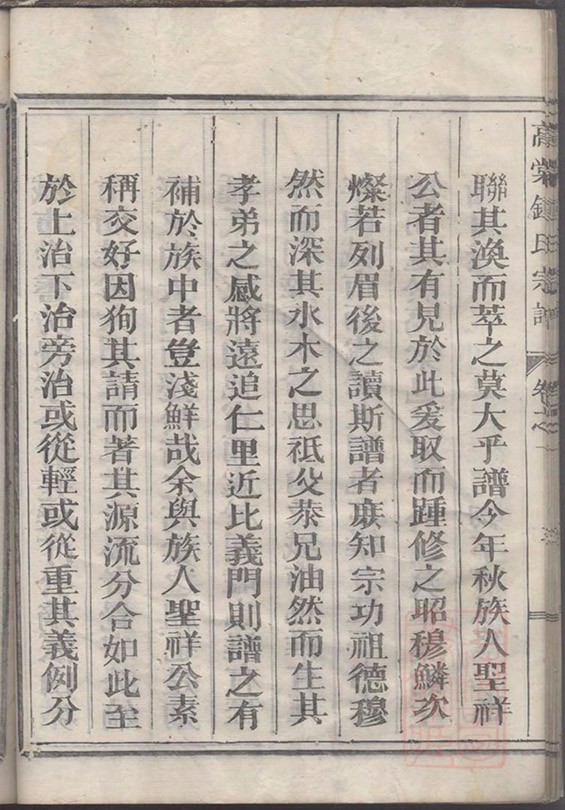 高棠鍾氏宗譜 卷之
聯其渙而萃之莫大乎譜今年秋族人聖祥
公者其有見於此爰取而踵修之昭穆鱗次
燦若列眉後之讀斯譜者庶知宗功祖德穆
然而深其水木之思祇父恭兄油然而生其
孝弟之感將遠追仁里近比義門則譜之有
補於族中者豈淺鮮哉余與族人聖祥公素
稱交好因狥其請而著其源流分合如此至
於上治下治旁治或從輕或從重其義例分